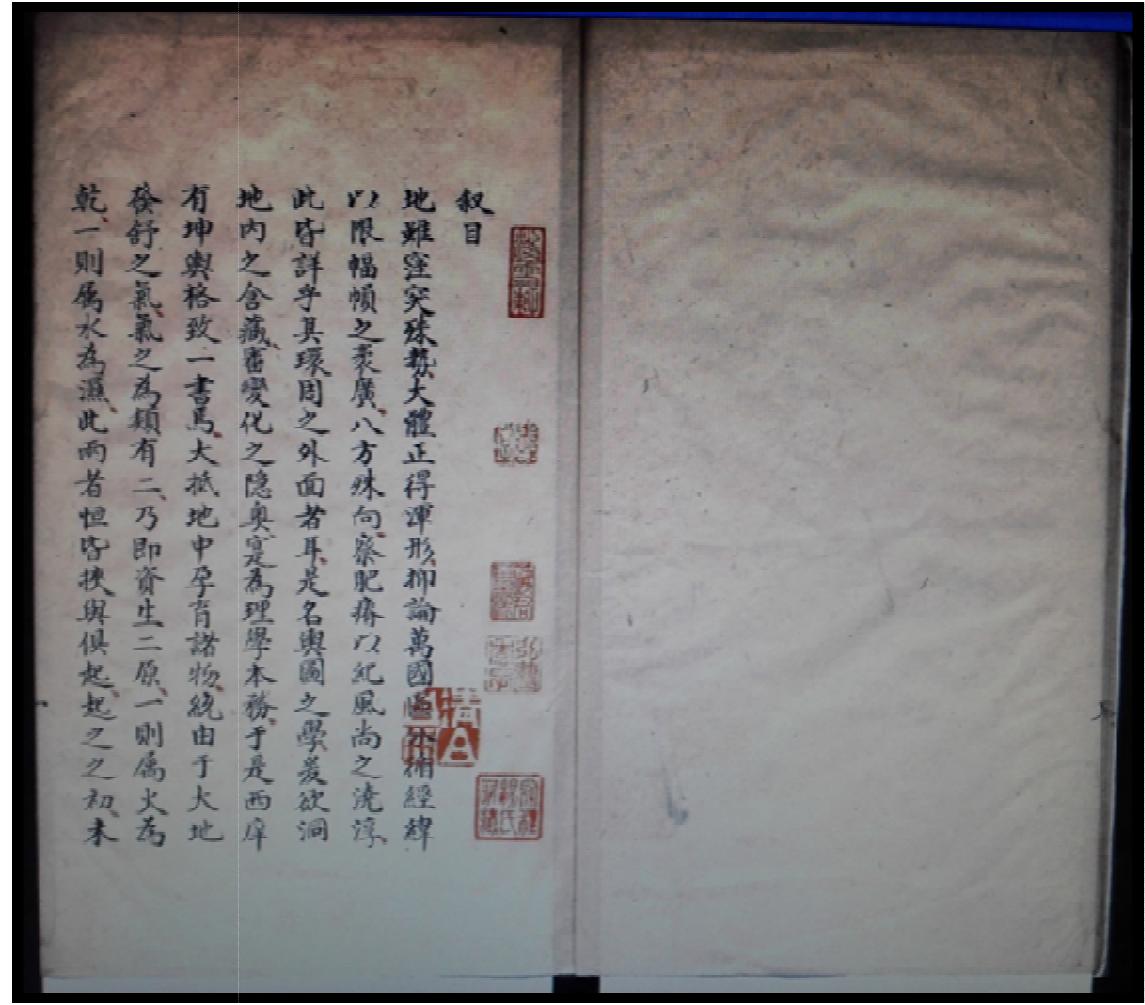 叙目
地雖窪突殊勢大體正得渾形抑論萬國區分補經緯
以限幅幀之袤廣八方殊向察肥瘠以紀風尚之澆淳
此皆詳乎其環周之外面者耳是名輿圖之學爰欲洞
地內之含藏審變化之隱奧寔為理學本務于是西庠
有坤輿格致一書焉大抵地中孕育諸物統由于大地
發舒之氣氣之為類有二乃即資生二原一則屬火為
乾一則屬水為濕此兩者恒皆挾與俱起起之之初未